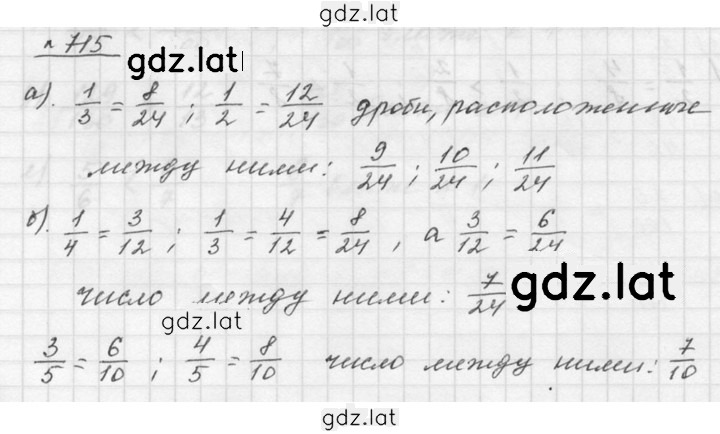 gdz.lat
№ 715
gdz.lat
а). 1/3 = 8/24 ; 1/2 = 12/24 дроби, расположенные
между ними: 9/24 ; 10/24 ; 11/24
б). 1/4 = 3/12 ; 1/3 = 4/12 = 8/24 , а 3/12 = 6/24
число между ними: 7/24
gdz.lat
gdz.lat
3/5 = 6/10 ; 4/5 = 8/10 число между ними: 7/10
gdz.lat